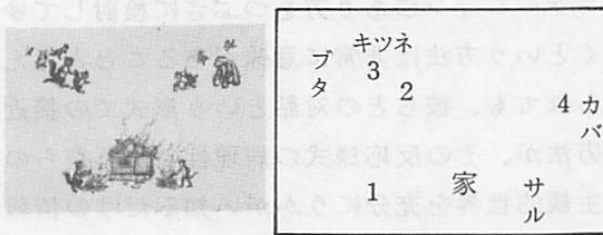 キツネ
ブタ
3
2
4
カバ
1
家
サル